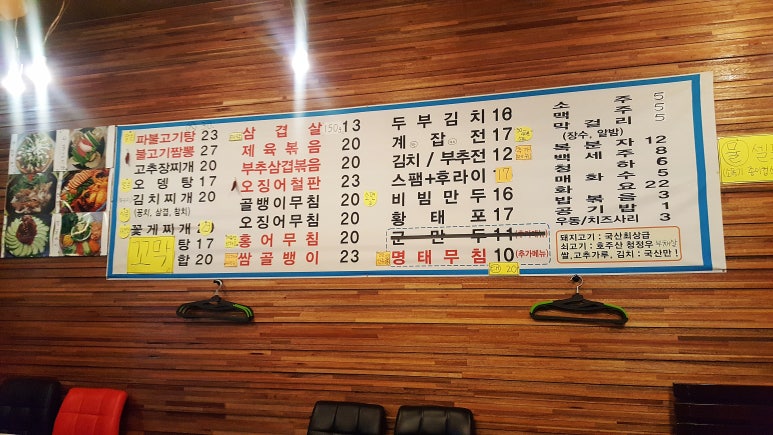 파불고기탕 23
불고기짬뽕 27
고추장찌개 20
오뎅탕 17
김치찌개
(꽁치, 삼겹, 참치)
꽃게찌개
탕 17
합 20
꼬막
삼겹살 150g 13
제육볶음 20
부추삼겹볶음 20
오징어철판 23
골뱅이무침 20
오징어무침 20
홍어무침 20
쌈골뱅이 23
두부김치 16
계잡전 17
김치/부추전 12
스팸+후라이 17
비빔만두 16
황태포 17
군만두 11
명태무침 10 (추가메뉴)
20
소주 5
맥주 5
막걸리 5
(장수, 알밤)
복분자 12
백세주 8
청하 6
매화수 5
화요 22
밥볶음 3
공기밥 1
우동/치즈사리 3
돼지고기 : 국산최상급
쇠고기 : 호주산 청정우
쌀,고추가루, 김치 : 국산만!
물 셀